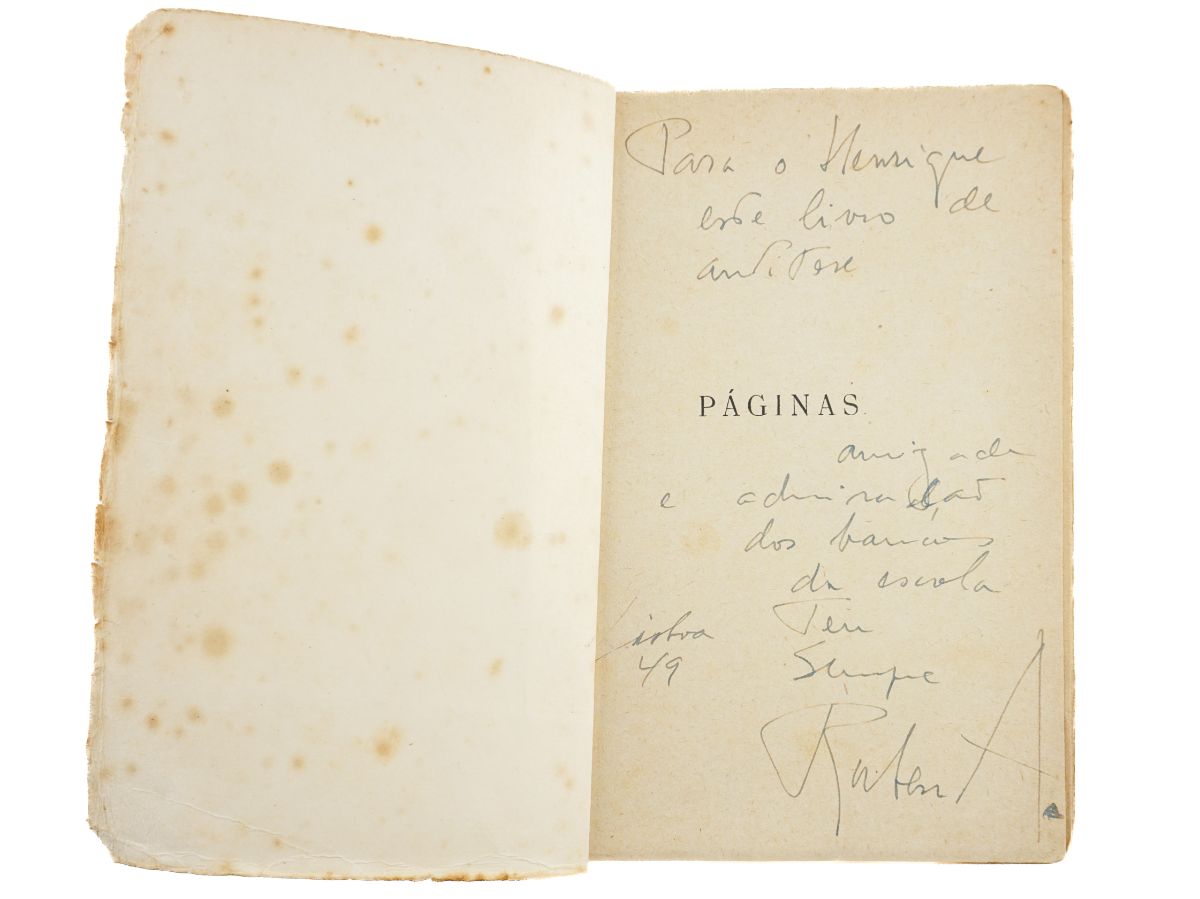 Para o Henrique
este livro de
PÁGINAS
amizade
e admiração
dos bancos
da escola
Lisboa Teu
49 Sempre
Ruben A.